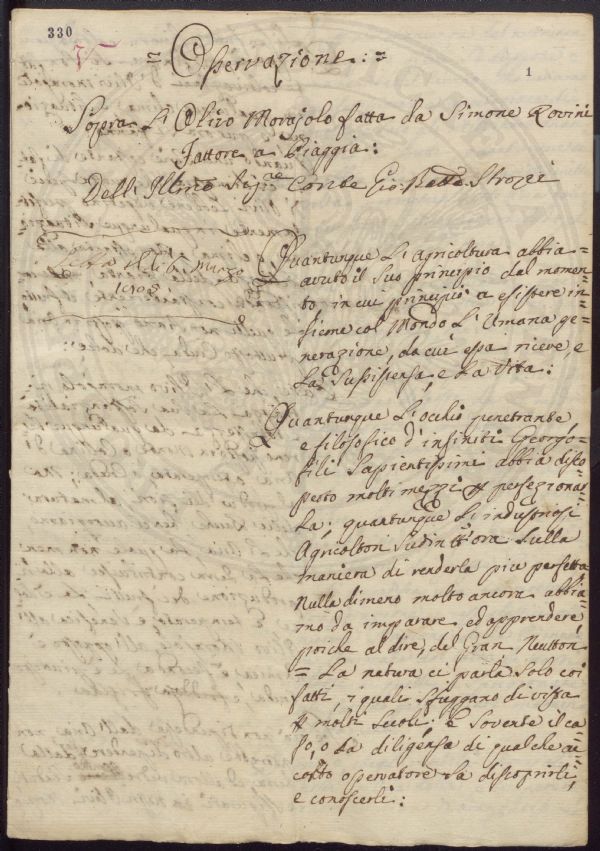 330
1
= Osservazione: =
Sopra L'Olivo Morajolo fatta da Simone Rovini
Fattore a Piaggia:
Dell' Illmo Sigre Conte Gio: Batta Strozzi
Letta il dì 6 Marzo
Quantunque L'Agricoltura abbia
avuto il suo principio dal momen=
to, in cui principiò a esistere in=
sieme col Mondo L'Umana ge=
nerazione, da cui essa riceve, e
La Sussistenza, e La Vita:
Quantunque L'occhio penetrante
e filosofico d'infiniti Georgo=
fili Sapientissimi abbia disco=
perto molti mezzi p perfezionar=
La; quantunque Li industriosi
Agricoltori Sudin tt'ora Sulla
maniera di renderla più perfetta
Nulladimeno molto ancora abbia=
mo da imparare, ed apprendere
poiche al dire, del Gran Neutton
= La natura ci parla Solo coi
fatti, i quali Sfuggano di vista
p molti Secoli: e Sovente il ca=
so, o La diligenza di qualche ac=
corto osservatore Sa discoprirli,
e conoscerli: